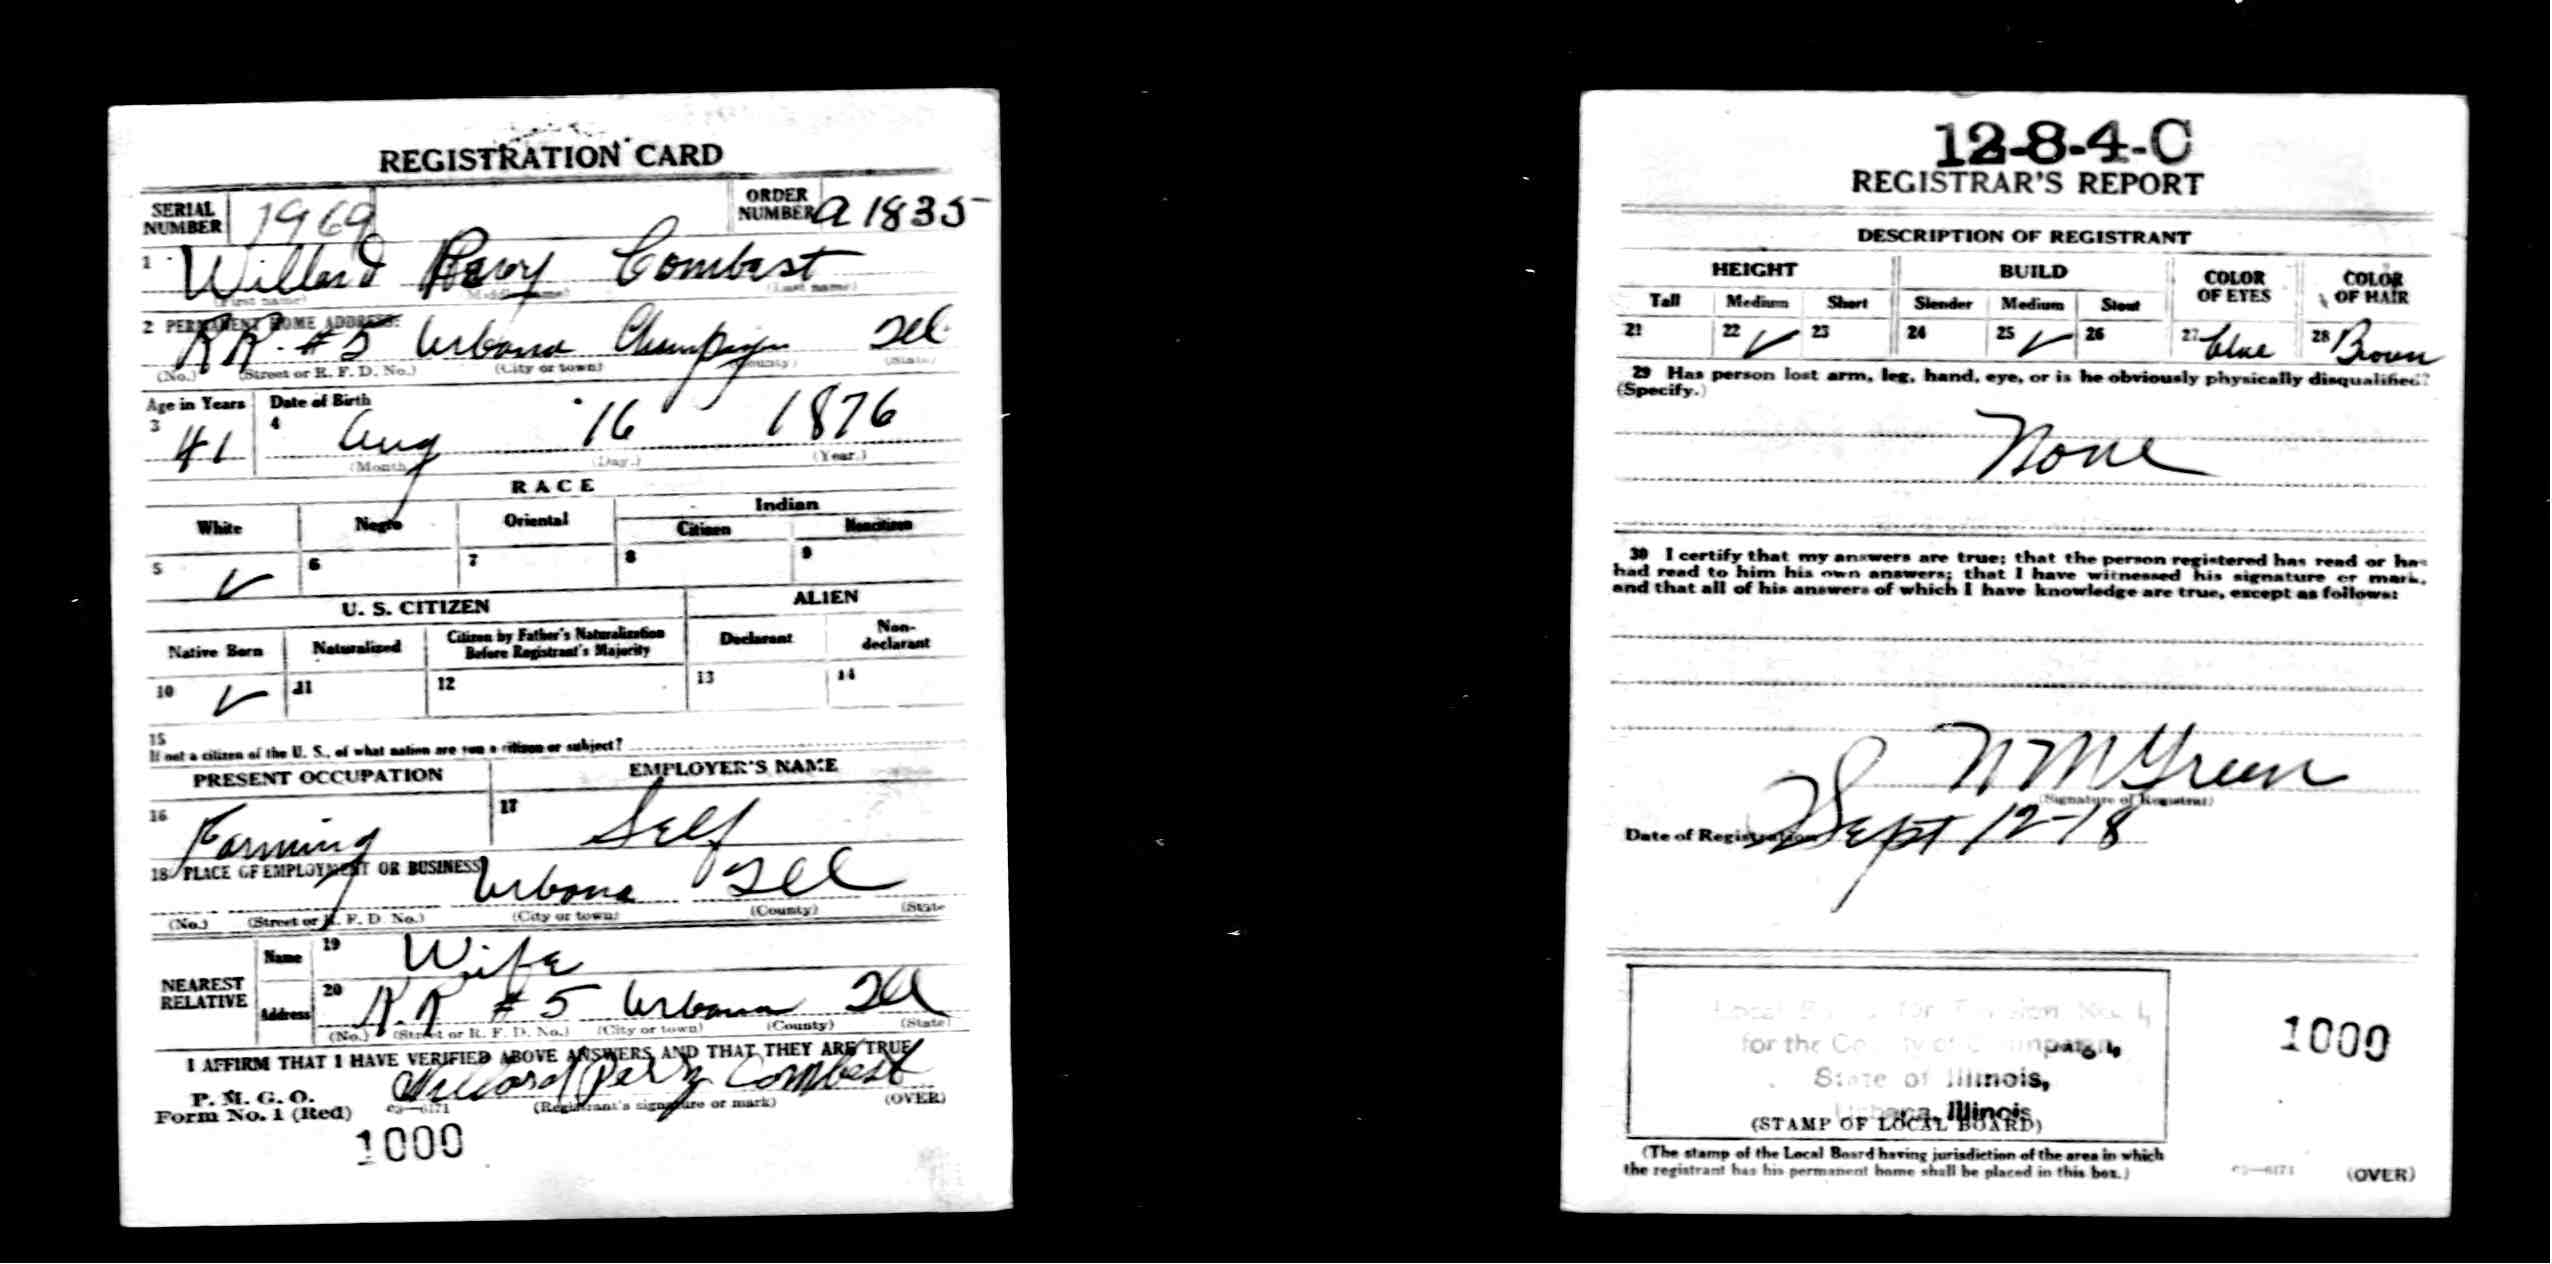 REGISTRATION CARD
SERIAL NUMBER 1969 ORDER NUMBER A 1835
1 Willard Perry Combest
(First name) (Middle name) (Last name)
2 PERMANENT HOME ADDRESS:
RR. #5 Urbana Champaign Ill
(No.) (Street or R. F. D. No.) (City or town) (County) (State)
Age in Years Date of Birth
3 41 4 Aug 16 1876
(Month) (Day.) (Year.)
RACE
White Negro Oriental Indian
Citizen Noncitizen
5 ✓ 6 7 8 9
U. S. CITIZEN ALIEN
Native Born Naturalized Citizen by Father's Naturalization Before Registrant's Majority Declarant Non-declarant
10 ✓ 11 12 13 14
15
If not a citizen of the U. S., of what nation are you a citizen or subject?
PRESENT OCCUPATION EMPLOYER'S NAME
16 Farming 17 Self
18 PLACE OF EMPLOYMENT OR BUSINESS
Urbana Ill
(No.) (Street or R. F. D. No.) (City or town) (County) (State
NEAREST RELATIVE
Name 19 Wife
Address 20 R.R #5 Urbana Ill
(No.) (Street or R. F. D. No.) (City or town) (County) (State)
I AFFIRM THAT I HAVE VERIFIED ABOVE ANSWERS AND THAT THEY ARE TRUE
P. M. G. O.
Form No. 1 (Red) Willard Perry Combest
(Registrant's signature or mark) (OVER)
1000
12-8-4-C
REGISTRAR'S REPORT
DESCRIPTION OF REGISTRANT
HEIGHT BUILD COLOR OF EYES COLOR OF HAIR
Tall Medium Short Slender Medium Stout
21 22 ✓ 23 24 25 ✓ 26 27 blue 28 Brown
29 Has person lost arm, leg, hand, eye, or is he obviously physically disqualified?
(Specify.)
None
30 I certify that my answers are true; that the person registered has read or has
had read to him his own answers; that I have witnessed his signature or mark,
and that all of his answers of which I have knowledge are true, except as follows:
N M Green
(Signature of Registrar)
Date of Registration Sept 12-18
Local Board for Division No. 1,
for the County of Champaign,
State of Illinois,
Urbana, Illinois
(STAMP OF LOCAL BOARD)
1000
(The stamp of the Local Board having jurisdiction of the area in which
the registrant has his permanent home shall be placed in this box.)
(OVER)